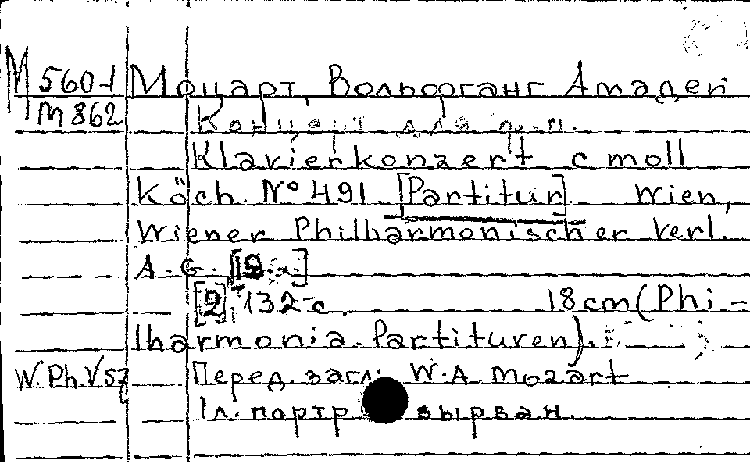 М 560-1 Моцарт, Вольфганг Амадей
М 862
Концерт для ф.-п.
Klavierkonzert c moll
Köch. № 491. [Partitur] Wien,
Wiener Philharmonischer Verl.
A. G. [19
[2], 132 с. 18 cm (Phi-
lharmonia. Partituren).
W.Ph.V 57 Перед. загл. W. A. Mozart
1 л. портр вырван.